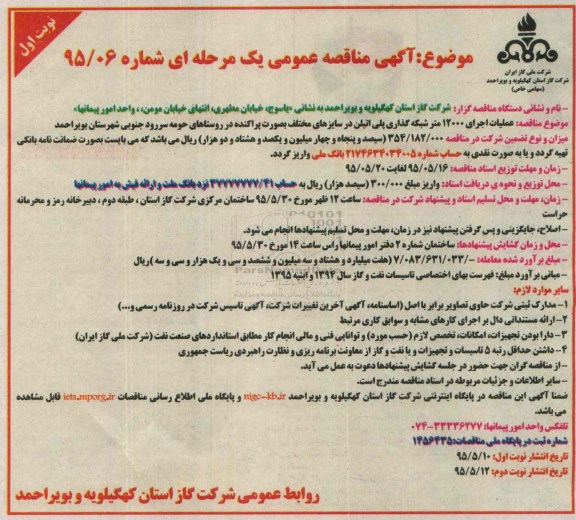 نوبت اول
موضوع: آگهی مناقصه عمومی یک مرحله ای شماره ۹۵/۰۶
شرکت ملی گاز ایران
شرکت گاز استان کهگیلویه و بویراحمد
(سهامی خاص)
- نام و نشانی دستگاه مناقصه گزار: شرکت گاز استان کهگیلویه و بویراحمد به نشانی «یاسوج، خیابان مطهری، انتهای خیابان مومن، ، واحد امور پیمانها»
موضوع مناقصه: عملیات اجرای ۱۲۰۰۰ متر شبکه گذاری پلی اتیلن در سایزهای مختلف بصورت پراکنده در روستاهای حومه سررود جنوبی شهرستان بویراحمد
میزان و نوع تضمین شرکت در مناقصه ۳۵۴/۱۸۲/۰۰۰ (سیصد و پنجاه و چهار میلیون و یکصد و هشتاد و دو هزار) ریال می باشد که می بایست بصورت ضمانت نامه بانکی
تهیه گردد و یا به صورت نقدی به حساب شماره ۲۱۷۴۶۳۴۰۳۴۰۰۵ بانک ملی واریز گردد.
- زمان و مهلت توزیع اسناد: ۹۵/۰۵/۱۶ لغایت ۹۵/۰۵/۲۰
- محل توزیع و نحوه ی دریافت اسناد: واریز مبلغ ۳۰۰/۰۰۰ (سیصد هزار) ریال به حساب ۳۷۷۷۷۷۷۷/۴۱ نزد بانک ملت و ارائه فیش به امور پیمانها
- زمان، مهلت و محل تسلیم اسناد و پیشنهاد شرکت در مناقصه: ساعت ۱۲ ظهر مورخ ۹۵/۵/۳۰ ساختمان مرکزی شرکت گاز استان ، طبقه دوم ، دبیرخانه رمز و محرمانه
حراست
- اصلاح، جایگزینی و پس گرفتن پیشنهاد نیز در زمان، مهلت و محل تسلیم پیشنهادها انجام می شود.
- محل و زمان گشایش پیشنهادها: ساختمان شماره ۲ دفتر امور پیمانها راس ساعت ۱۴ مورخ ۹۵/۵/۳۰
- مبلغ برآورد شده معامله: /-۷/۰۸۳/۶۳۱/۰۳۳ (هفت میلیارد و هشتاد و سه میلیون و ششصد و سی و یک هزار و سی و سه )ریال
- مبانی برآورد مبلغ: فهرست بهای اختصاصی تاسیسات نفت و گاز سال ۱۳۹۴ و ابنیه ۱۳۹۵
سایر موارد لازم:
۱- مدارک ثبتی شرکت حاوی تصاویر برابر با اصل (اساسنامه، آگهی آخرین تغییرات شرکت، آگهی تاسیس شرکت در روزنامه رسمی و...)
۲- ارائه مستنداتی دال بر اجرای کارهای مشابه و سوابق کاری مرتبط
۳- دارا بودن تجهیزات، امکانات، تخصص لازم (حسب مورد) و توانایی فنی و مالی انجام کار مطابق استانداردهای صنعت نفت (شرکت ملی گاز ایران)
۴- داشتن حداقل رتبه ۵ تاسیسات و تجهیزات و یا نفت و گاز از معاونت برنامه ریزی و نظارت راهبردی ریاست جمهوری
- از مناقصه گران جهت حضور در جلسه گشایش پیشنهادها دعوت به عمل می آید.
- سایر اطلاعات و جزئیات مربوطه در اسناد مناقصه مندرج است.
ضمنا آگهی این مناقصه در پایگاه اینترنتی شرکت گاز استان کهگیلویه و بویراحمد nigc-kb.ir و پایگاه ملی اطلاع رسانی مناقصات iets.mporg.ir قابل مشاهده
می باشد.
تلفکس واحد امور پیمانها: ۳۳۳۳۶۲۷۷-۰۷۴
شماره ثبت در پایگاه ملی مناقصات: ۱۴۵۶۴۳۵
تاریخ انتشار نوبت اول: ۹۵/۵/۱۰
تاریخ انتشار نوبت دوم: ۹۵/۵/۱۲
روابط عمومی شرکت گاز استان کهگیلویه و بویراحمد